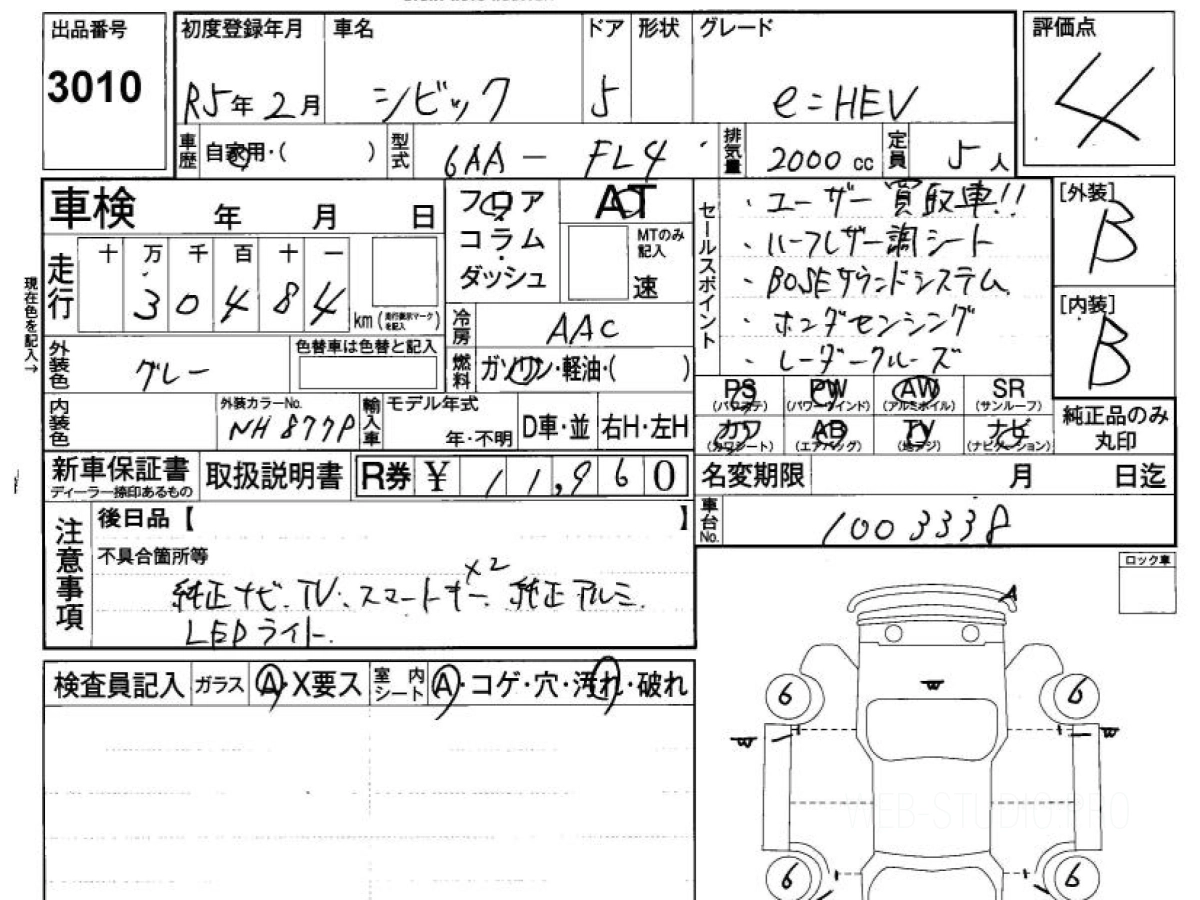 出品番号
3010
初度登録年月
R5年2月
車名
シビック
ドア
5
形状
グレード
e:HEV
評価点
4
車歴
自家用・( )
型式
6AA - FL4
排気量
2000 cc
定員
5人
車検 年 月 日
走行
十 万 千 百 十 一
3 0 4 8 4
km (走行表示マークを記入)
現在色を記入→
フロア
コラム
ダッシュ
AT
MTのみ記入
速
冷房
AAC
燃料
ガソリン・軽油・( )
セールスポイント
・ユーザー買取車!!
・ハーフレザー調シート
・BOSEサウンドシステム
・ホンダセンシング
・レーダークルーズ
[外装]
B
[内装]
B
外装色
グレー
色替車は色替と記入
内装色
外装カラーNo.
NH877P
輸入車
モデル年式
年・不明
D車・並
右H・左H
PS
(パワステ)
PW
(パワーウインド)
AW
(アルミホイル)
SR
(サンルーフ)
カワ
(カワシート)
AB
(エアバッグ)
TV
(地デジ)
ナビ
(ナビゲーション)
純正品のみ
丸印
新車保証書
ディーラー捺印あるもの
取扱説明書
R券 ¥ 11,960
名変期限 月 日迄
車台No.
1003338
注意事項
後日品【 】
不具合箇所等
純正ナビ.TV.スマートキー×2 純正アルミ.
LEDライト.
検査員記入
ガラス
A・X要ス
室内シート
A・コゲ・穴・汚れ・破れ
ロック車
A
W
6
6
W
W
6
6
WEB-STUDIO.PRO